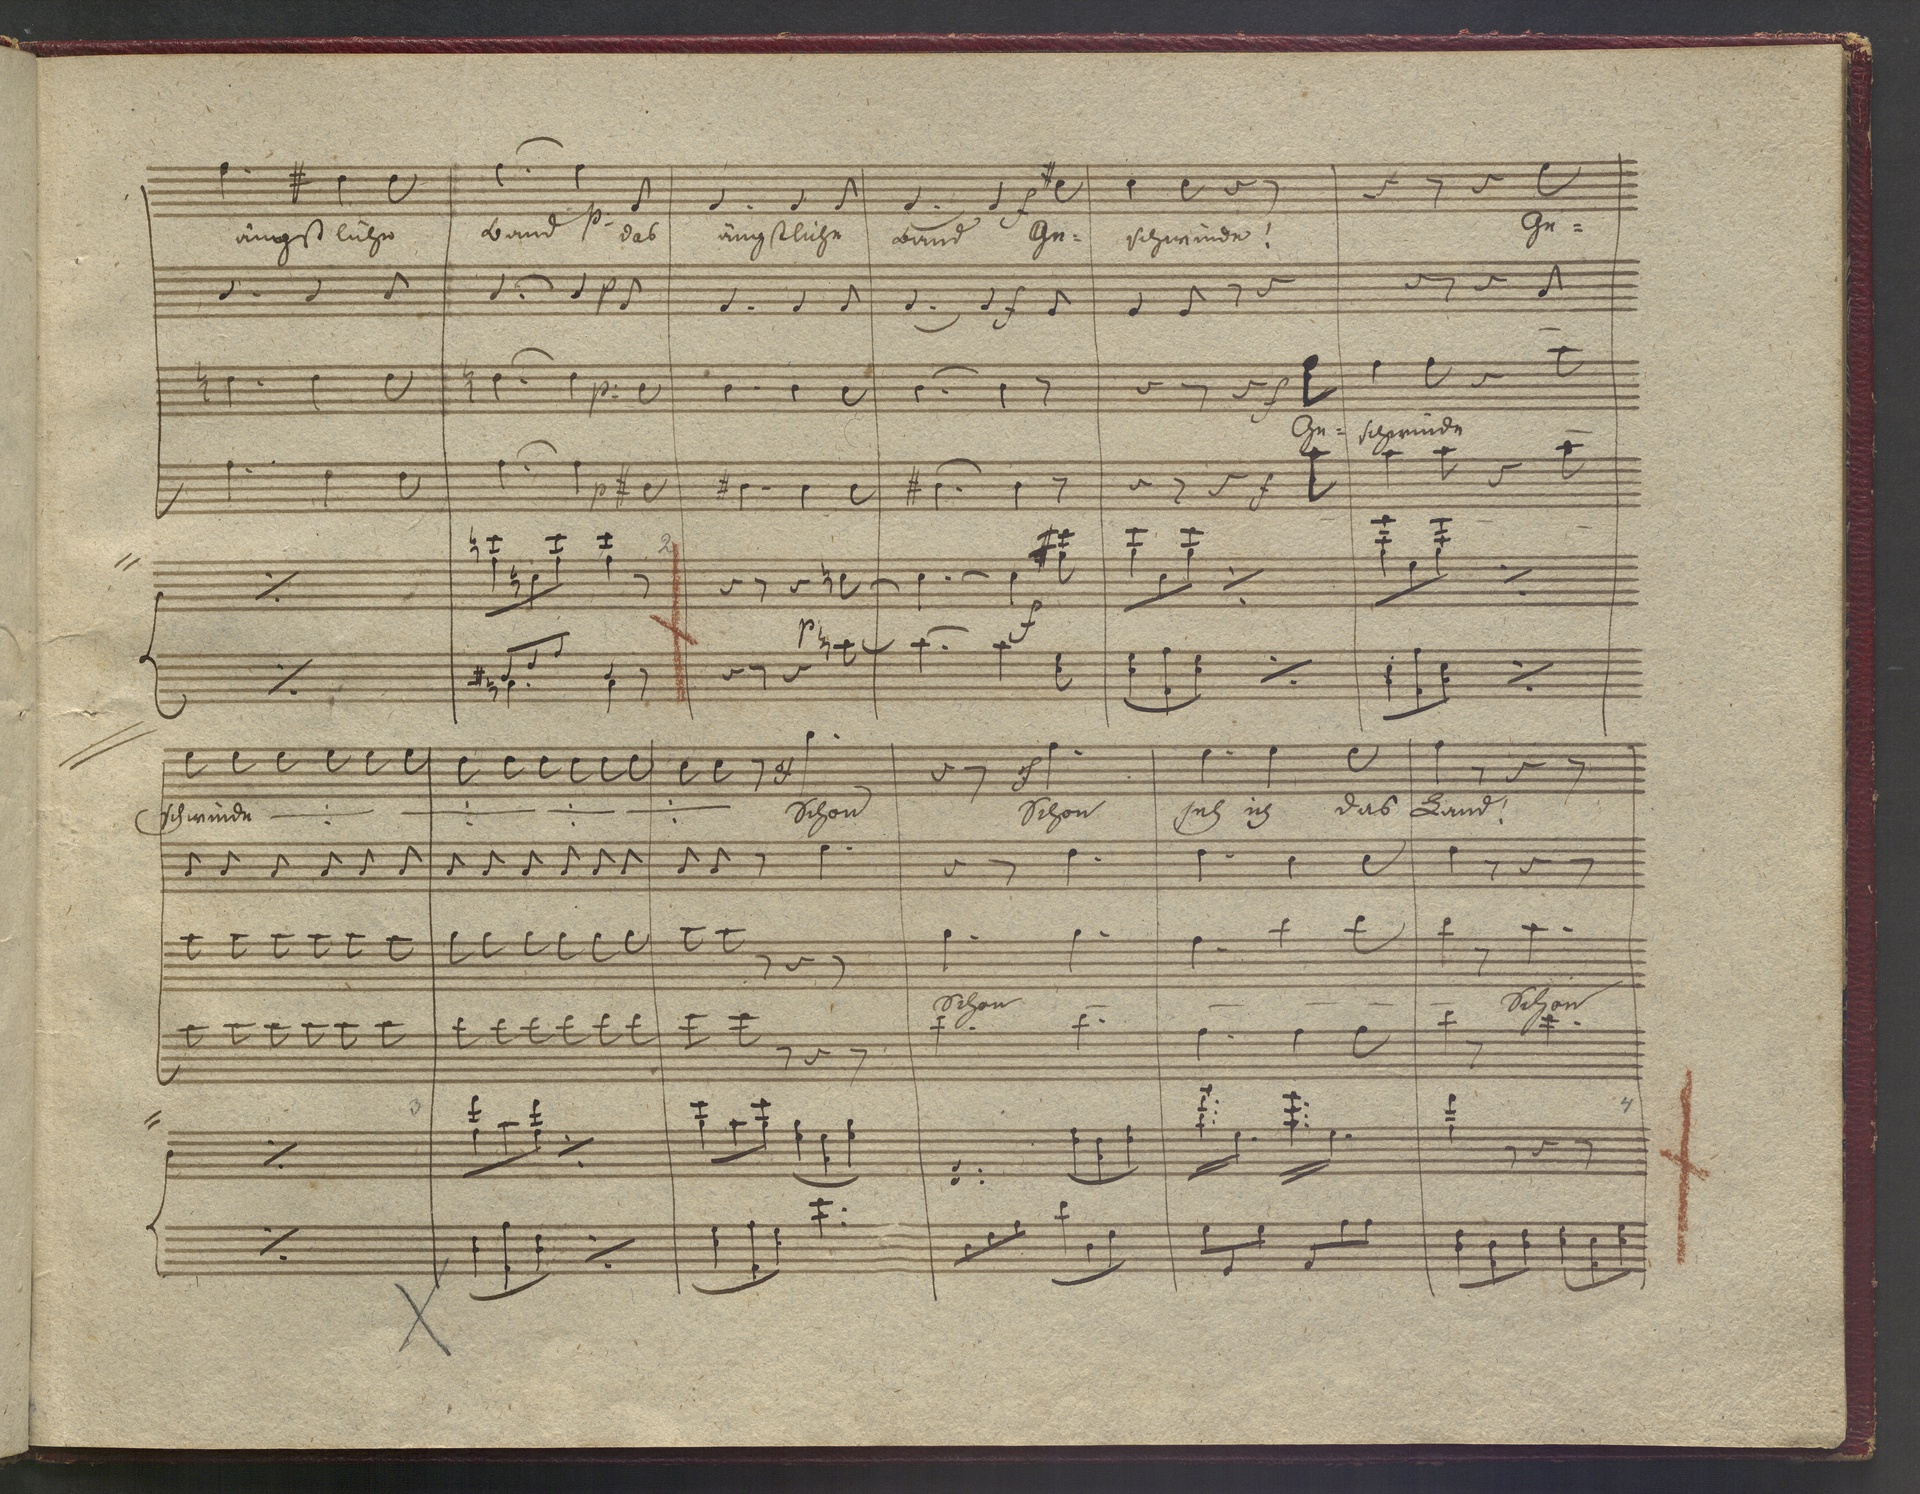 ängstliche Band p: das ängstliche Band f Ge= schwinde! Ge=
p f
p: f
Ge= schwinde
p f
2
p f
schwinde Schon Schon seh ich das Land!
Schon Schon
3 4